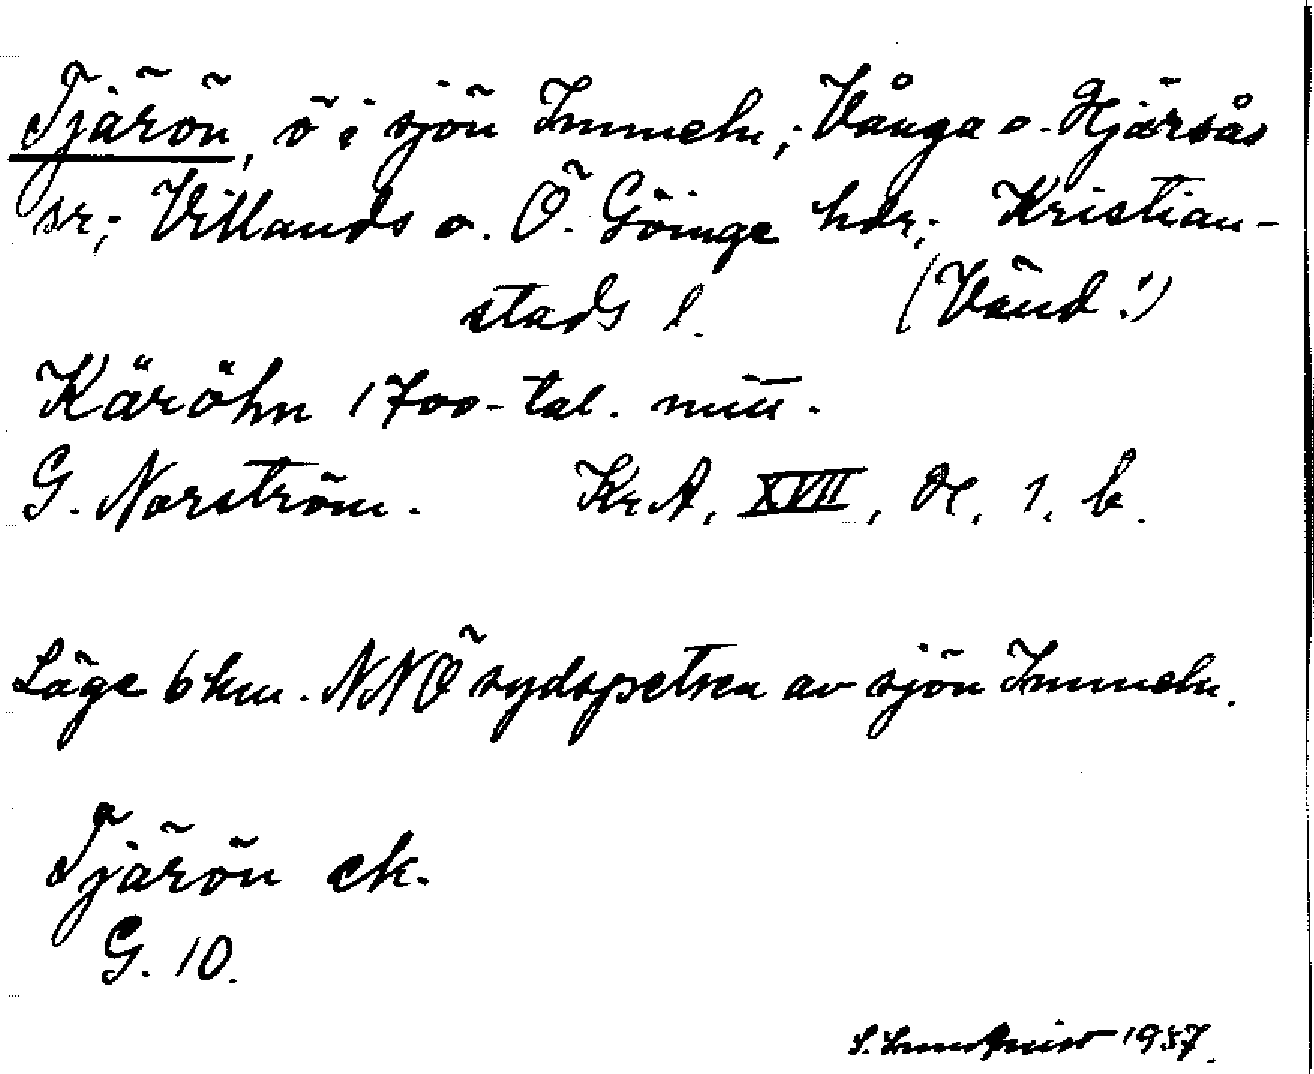 Tjärön, ö i sjön Immeln; Vånga o. Hjärsås
sr; Villands o. Ö. Göinge hdr; Kristian-
stads l. (Vänd!)
Käröhn 1700-tal. mitt.
G. Norström. KrA, XVII, Sk, 1. b.
Läge 6 km. NNÖ sydspetsen av sjön Immeln.
Tjärön ek.
G. 10.
S. Lundquist 1957.